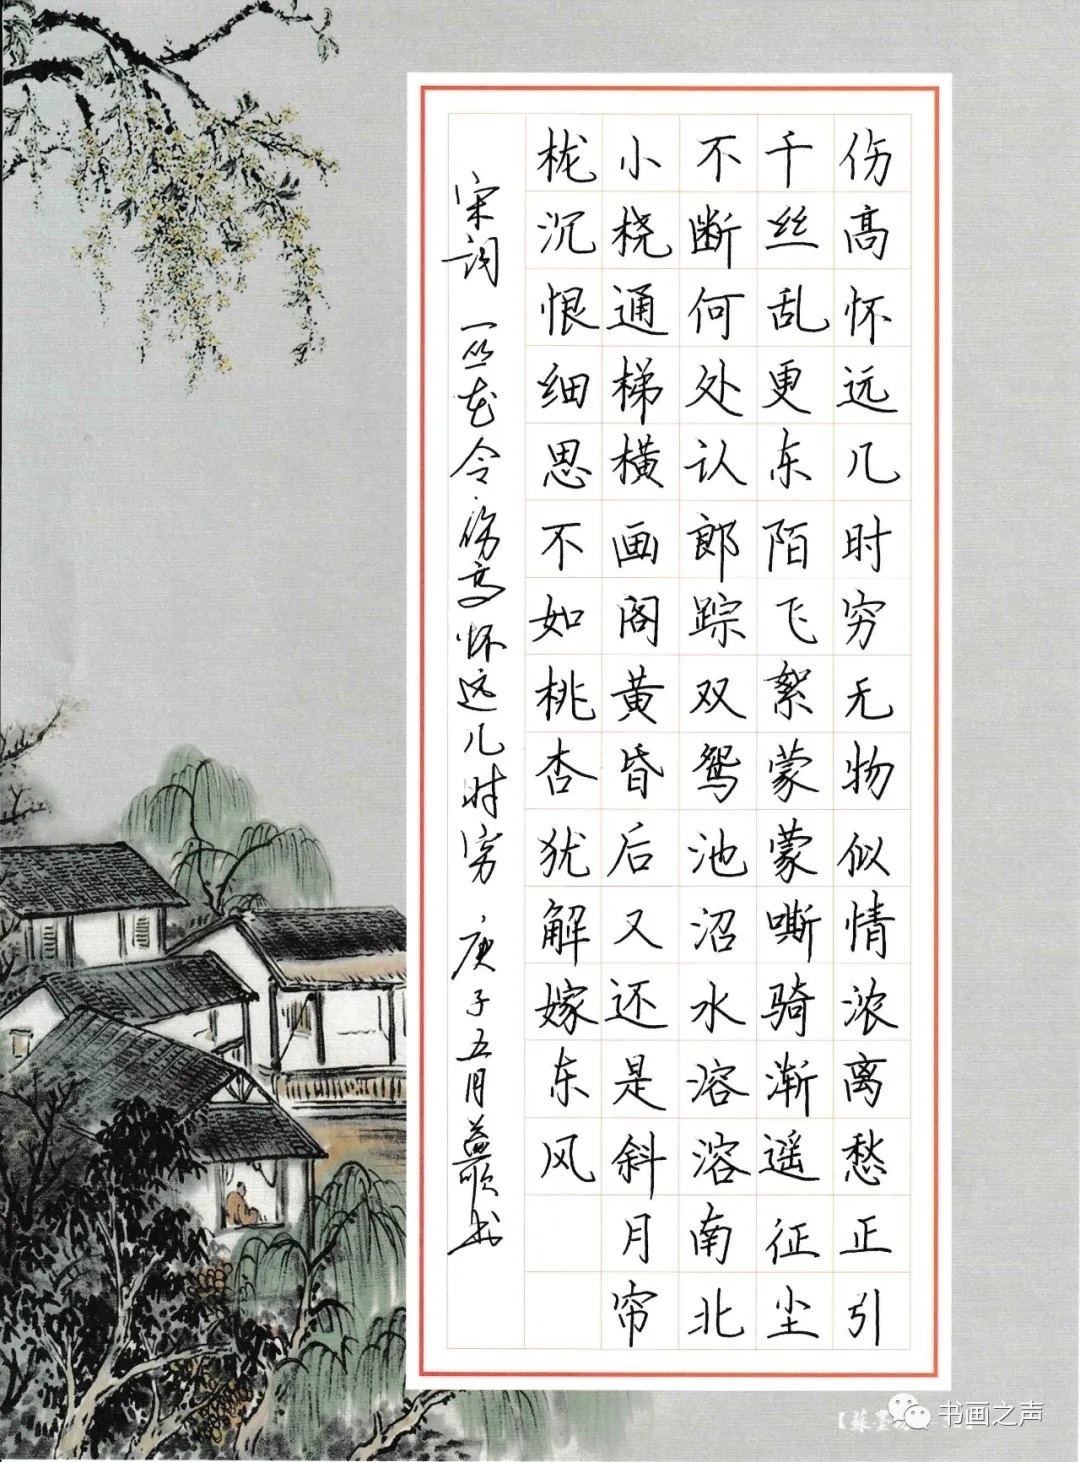 伤高怀远几时穷无物似情浓离愁正引
千丝乱更东陌飞絮蒙蒙嘶骑渐遥征尘
不断何处认郎踪双鸳池沼水溶溶南北
小桡通梯横画阁黄昏后又还是斜月帘
栊沉恨细思不如桃杏犹解嫁东风
宋词 一丛花令 伤高怀远几时穷 庚子五月益书
【蘇墨
书画之声